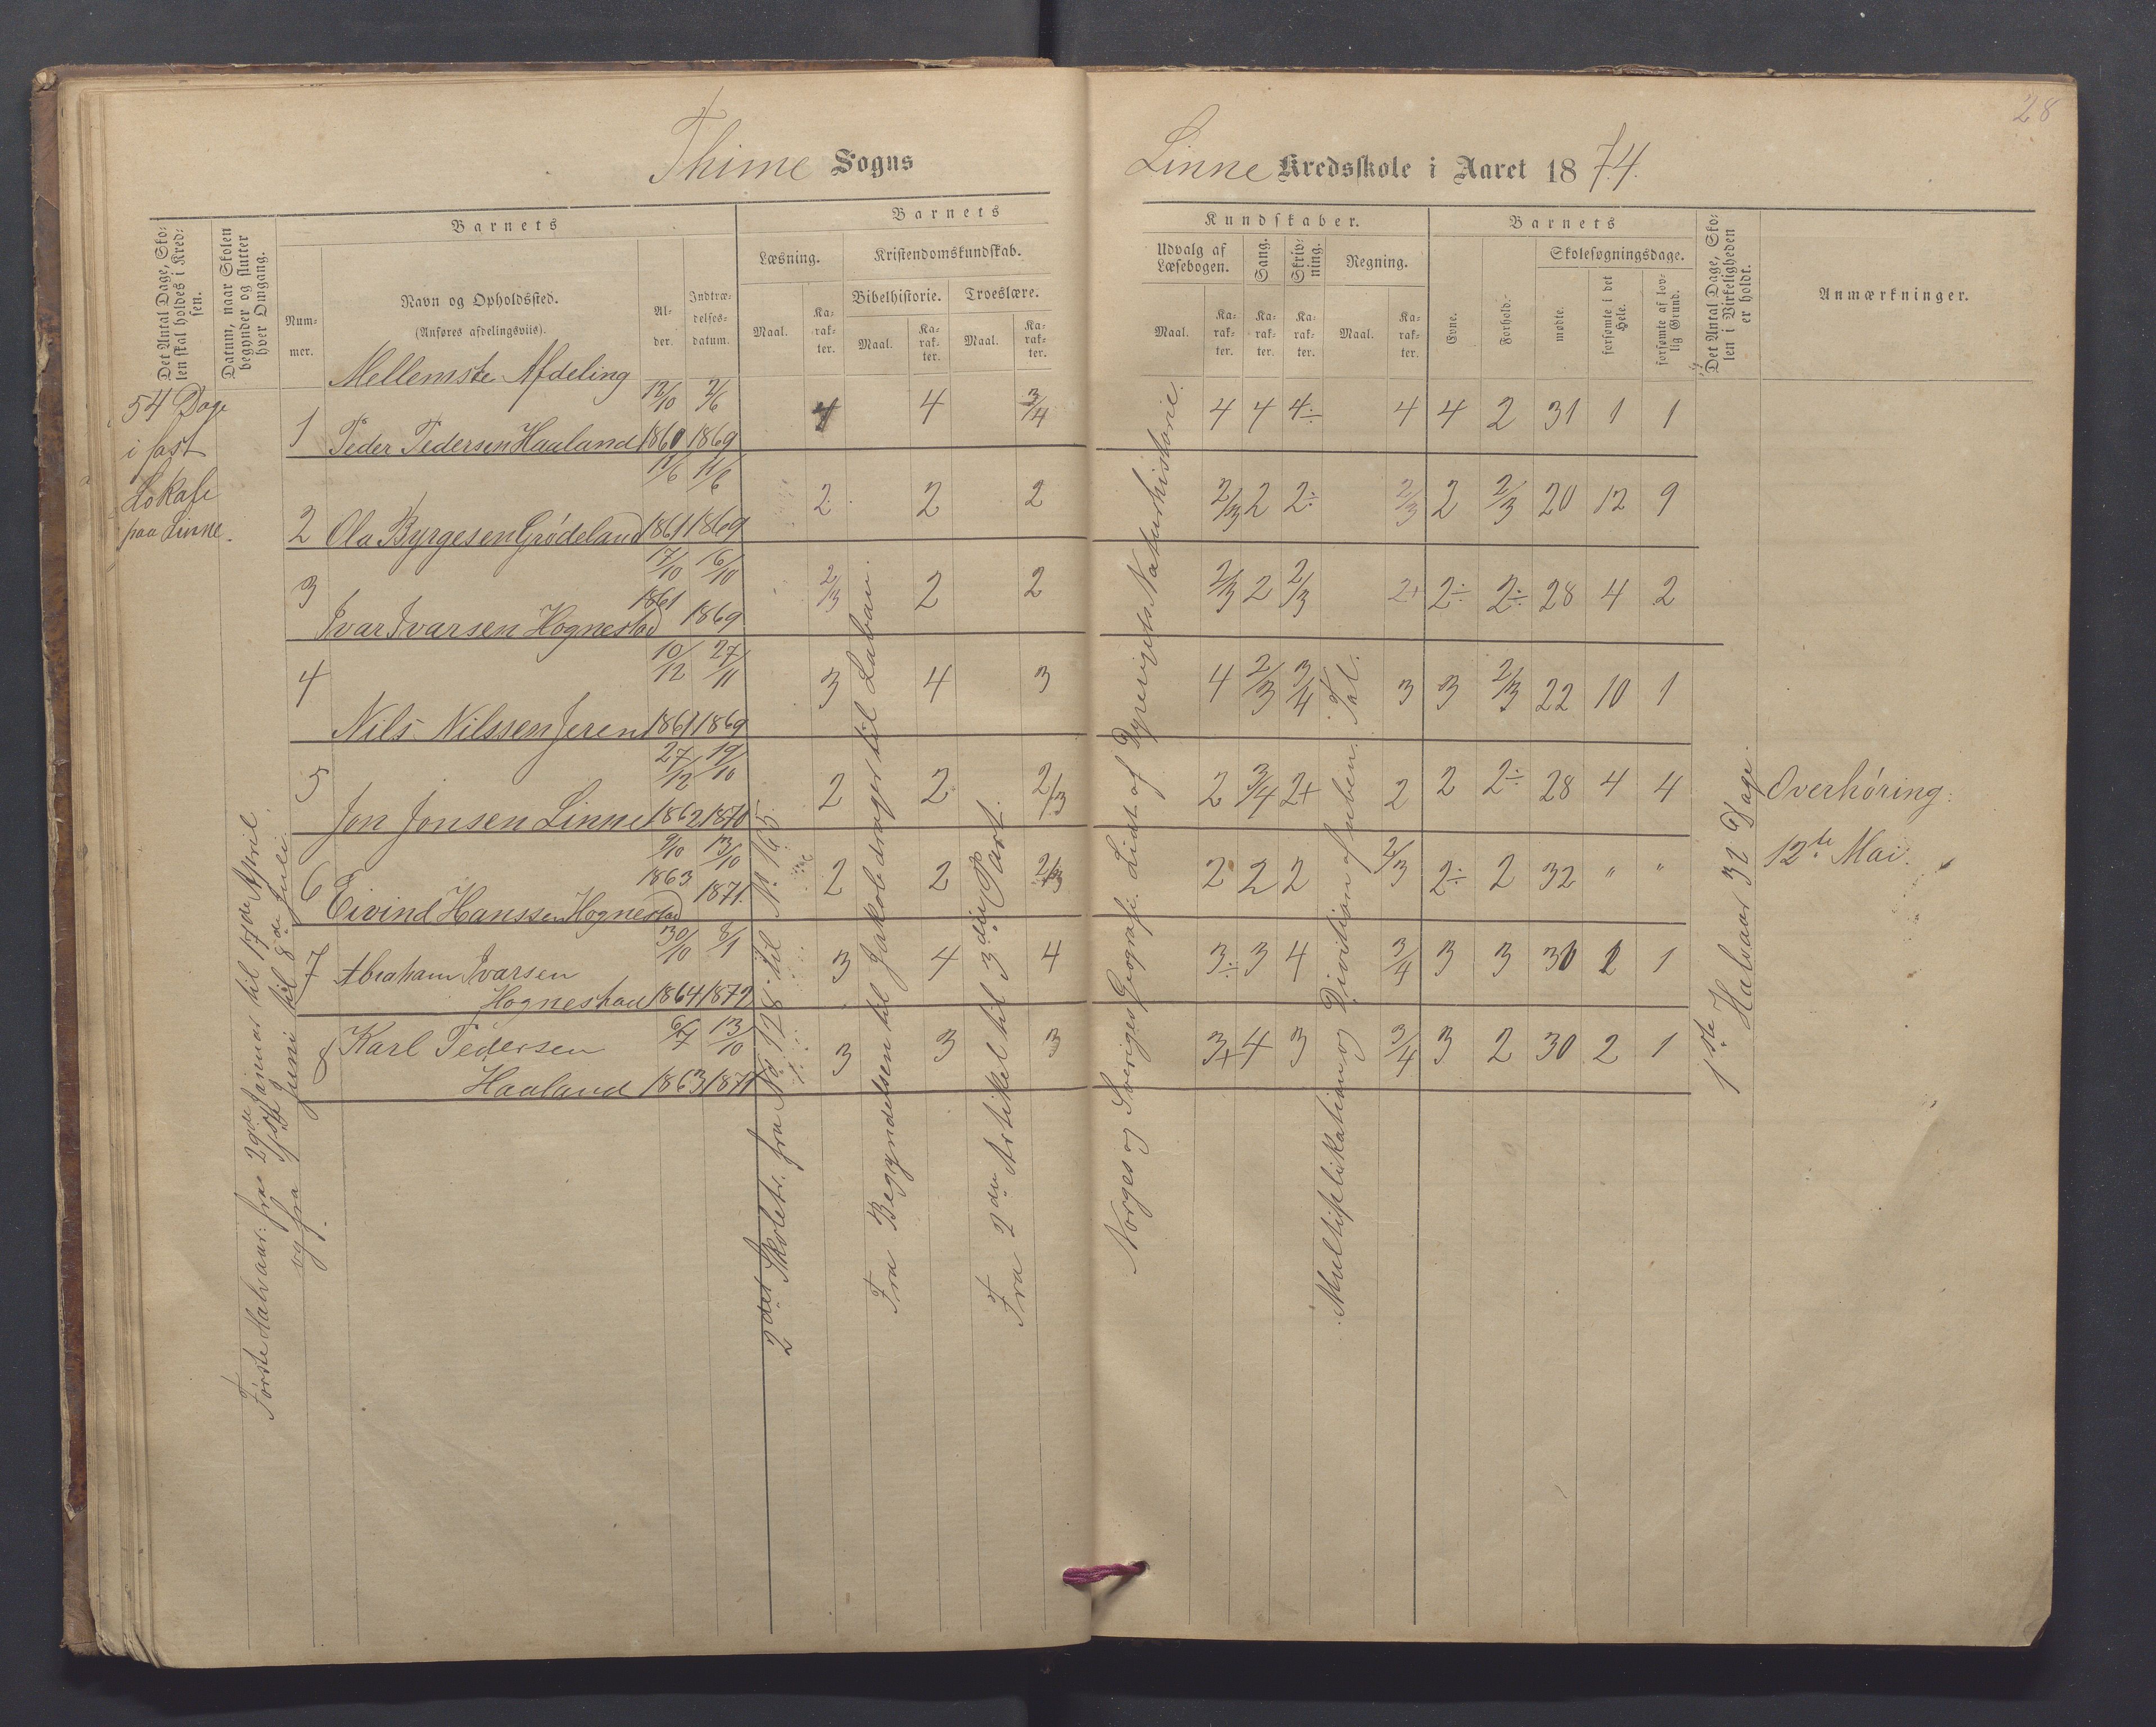 28
Thime Sogns
Linne Kredsskole i Aaret 1874.
Det Antal Dage, Sko-
len skal holdes i Kred-
sen.
Datum, naar Skolen
begynder og slutter
hver Omgang.
Barnets
Num-
mer.
Navn og Opholdssted.
(Anføres afdelingsviis).
Al-
der.
Indtræ-
delses-
datum.
Barnets
Læsning.
Maal.
Ka-
rak-
ter.
Kristendomskundskab.
Bibelhistorie.
Maal.
Ka-
rak-
ter.
Troeslære.
Maal.
Ka-
rak-
ter.
Kundskaber.
Udvalg af
Læsebogen.
Maal.
Ka-
rak-
ter.
Sang.
Ka-
rak-
ter.
Skriv-
ning.
Ka-
rak-
ter.
Regning.
Maal.
Ka-
rak-
ter.
Barnets
Evne.
Forhold.
Skolesøgningsdage.
mødte.
forsømte i det
Hele.
forsømte af lov-
lig Grund.
Det Antal Dage, Sko-
len i Virkeligheden
er holdt.
Anmærkninger.
54 Dage
i fast
Lokale
paa Linne.
Første Halvaar: fra 29de Januar til 17de April.
og fra 1ste Juni til 8de Juli.
Mellemste Afdeling
1 Peder Pedersen Haaland 12/10 1860 2/6 1869 4 4 3/4 4 4 4÷ 4 4 2 31 1 1
2 Ola Byrgesen Grødeland 17/6 1861 11/6 1869 2 2 2 2/3 2 2÷ 2/3 2 2/3 20 12 9
3 Ivar Ivarsen Hognestad 17/10 1861 16/10 1869 2/3 2 2 2/3 2 2/3 2+ 2÷ 2÷ 28 4 2
4 Nils Nilssen Jeren 10/12 1861 27/11 1869 3 4 3 4 2/3 3/4 3 3 2/3 22 10 1
5 Jon Jonsen Linne 27/12 1862 19/10 1870 2 2 2/3 2 3/4 2+ 2 2 2÷ 28 4 4
6 Eivind Hanssen Hognestad 9/10 1863 13/10 1871. 2 2 2/3 2 2 2 2/3 2÷ 2 32 " "
7 Abraham Ivarsen
Hognestad 30/10 1864 8/1 1872 3 4 4 3÷ 3 4 3/4 3 3 30 2 1
8 Karl Pedersen
Haaland 6/7 1863 13/10 1871 3 3 3 3+ 4 3 3/4 3 2 30 2 1
2det Skoletr. fra No 128 til No 165.
Fra Begyndelsen til Jakob drager til Laban.
Fra 2den Artikel til 3die Part.
Norges og Sveriges Geografi. Lidt af Dyrerigets Naturhistorie.
Multiplikation og Division af uben. Tal.
1ste Halvaar 32 Dage.
Overhøring:
12te Mai.